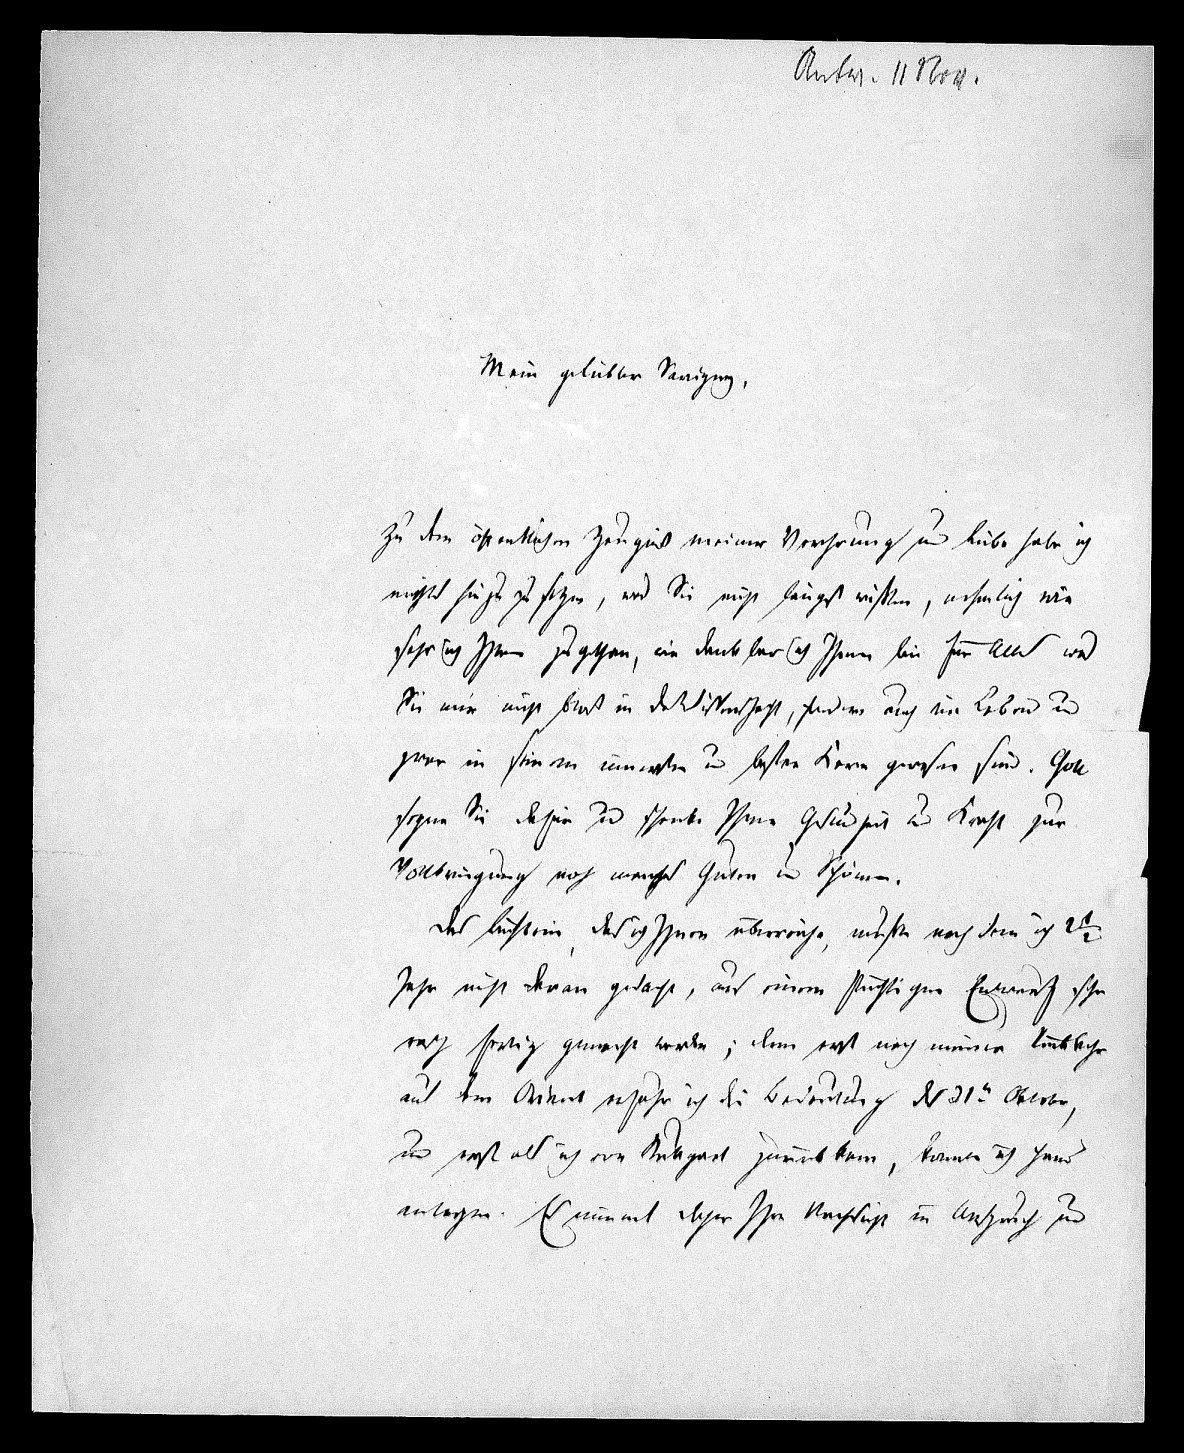 Antw. 11 Nov.
Mein geliebter Savigny,
Zu dem öffentlichen Zeugniß meiner Verehrung und Liebe habe ich
nichts hinzu zu setzen, was Sie nicht längst wüßten, nehmlich wie
sehr ich Ihnen zugethan, wie dankbar ich Ihnen bin für Alles was
Sie mir nicht bloß in der Wissenschaft, sondern auch im Leben und
zwar in seinem innersten und besten Kern gewesen sind. Gott
segne Sie dafür und schenke Ihnen Gesundheit und Kraft zur
Vollbringung noch manches Guten und Schönen.
Das Büchlein, das ich Ihnen überreiche, mußte nach dem ich 2 1/2
Jahr nicht daran gedacht, aus einem flüchtigen Entwurf sehr
rasch fertig gemacht werden; denn erst nach meiner Rückkehr
aus dem Orient erfuhr ich die Bedeutung des 31n October,
und erst als ich von Stuttgart zurückkam, konnte ich Hand
anlegen. Es nimmt daher Ihre Nachsicht in Anspruch und